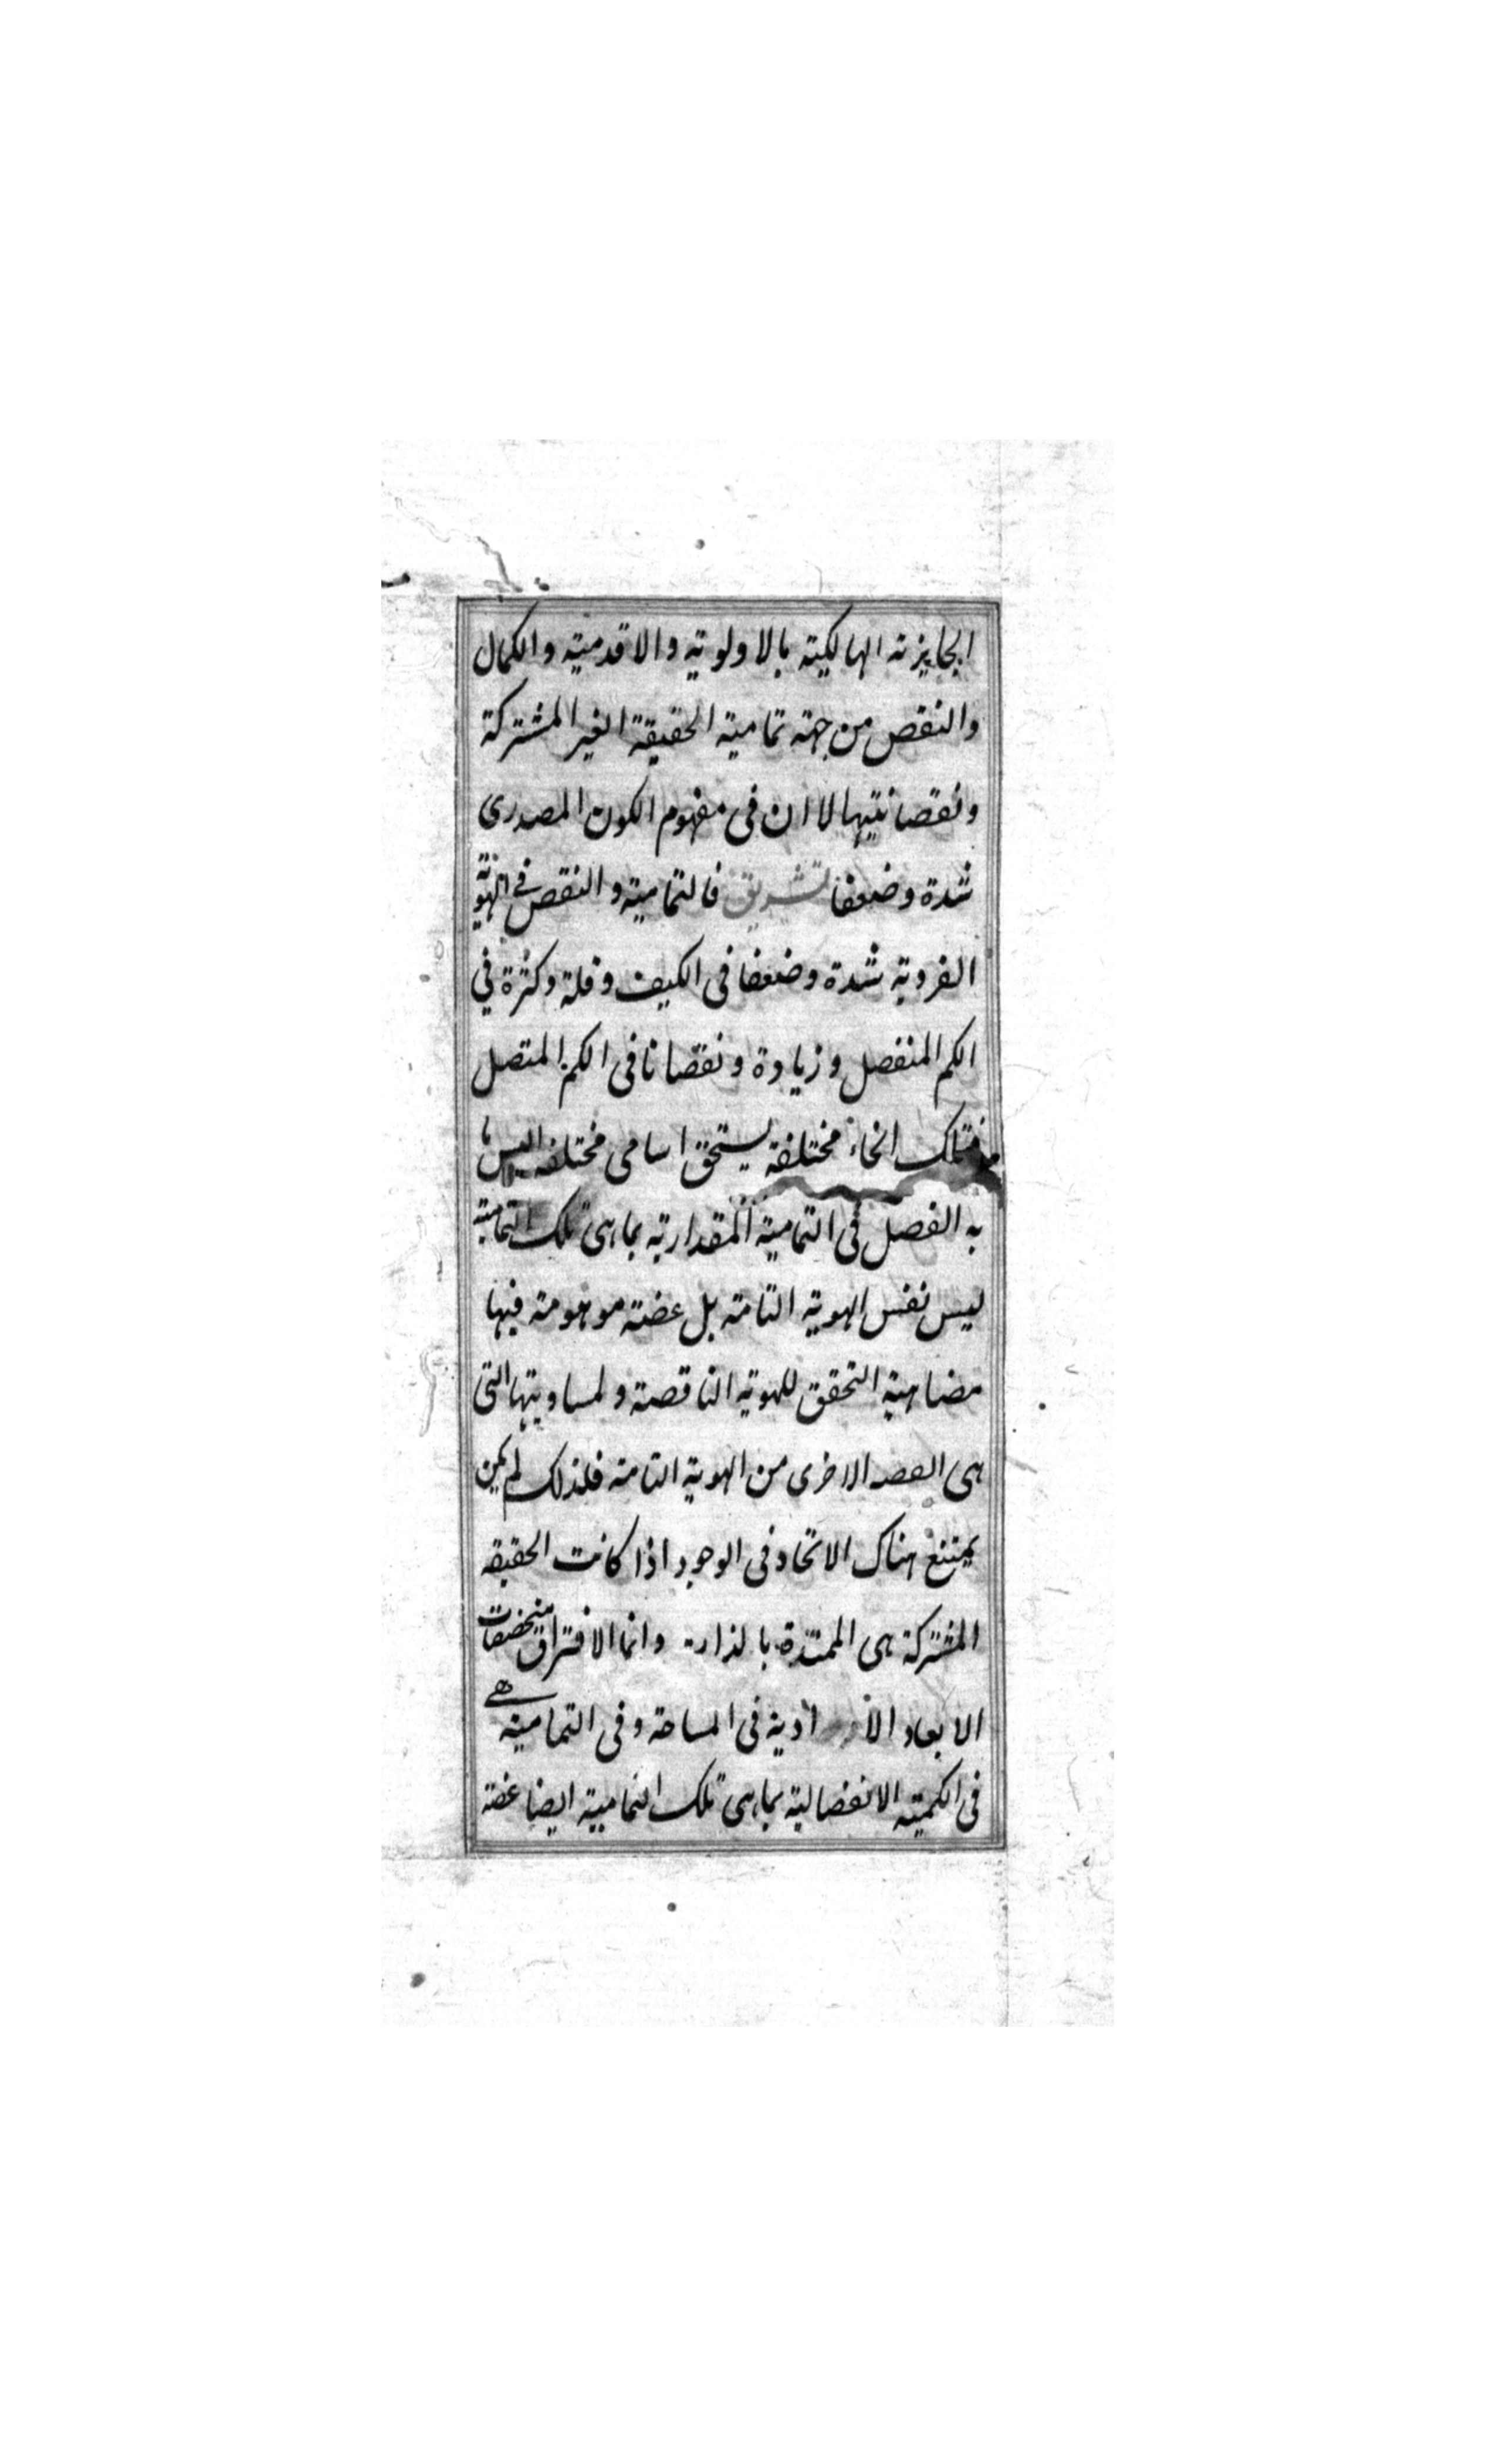 الجايزته الهالكيته بالاولوتيه والاقدميته والكمال
والنقص من جهته تماميته الحقيقة الغير المشتركة
ونقصانيتها لا ان فى مفهوم الكون المصدرى
شدة وضعفا تشريق فالتماميته والنقص فى الهوّيّة
الفردية شدة وضعفا فى الكيف وقلة وكثرة في
الكم المنفصل وزيادة ونقصانا فى الكم المتصل
فتلك انحاء مختلفة يستحق اسامى مختلفه اليس ما
به الفصل فى التماميته المقدارية بماهى تلك التماميته
ليس نفس الهوية التامته بل عضته موهومته فيها
مضاهية التحقق للهوية الناقصته ولمساويتها التى
هى الاخرى من الهوية التامته فلذلك لم يكن
يمتنع هناك الاتحاد فى الوجود اذا كانت الحقيقه
المشتركة هى الممتدة بالذات وانما الافتراق
الابعاد فى المساحته وفى التماميته هى
فى الكميته الانفصالية بماهى تلك التمامية ايضا عضته